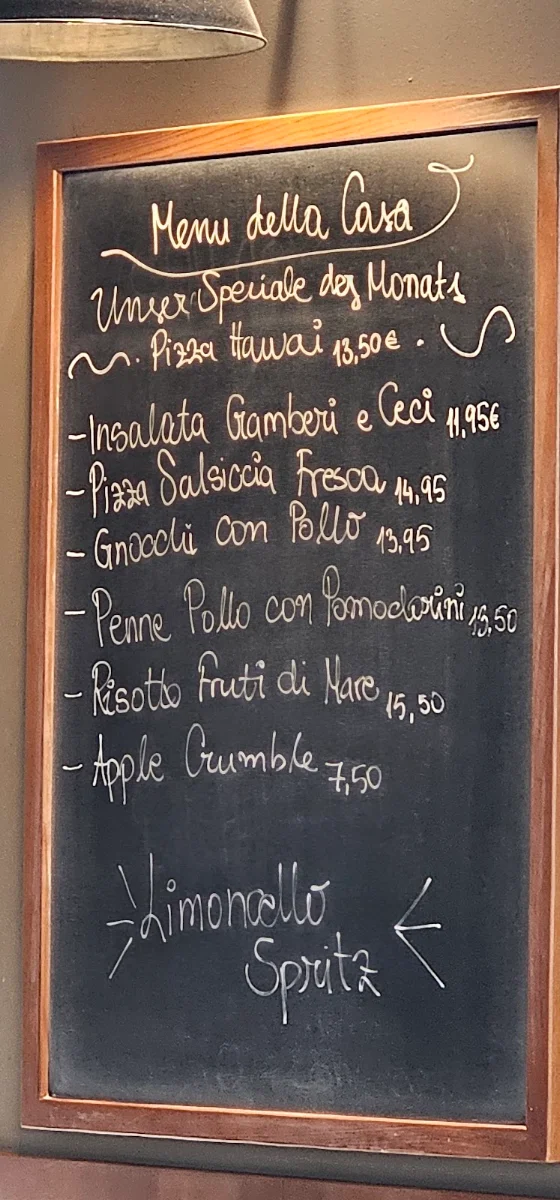 Menu della Casa
Unser Speciale des Monats
Pizza Hawai 13,50€.
- Insalata Gamberi e Ceci 11,95€
- Pizza Salsiccia Fresca 14,95
- Gnocchi con Pollo 13,95
- Penne Pollo con Pomodorini 13,50
- Risotto Fruti di Mare 15,50
- Apple Crumble 7,50
Limoncello
Spritz